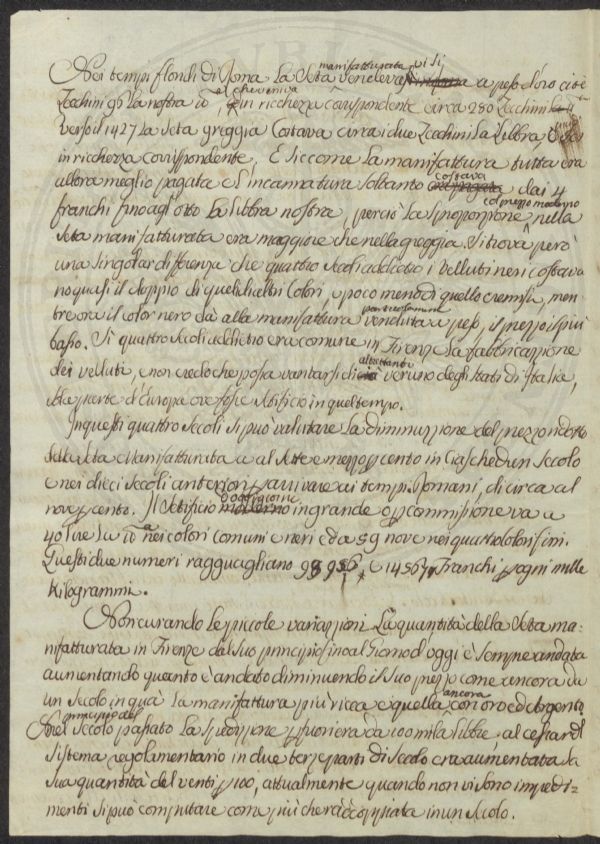 Nei tempi floridi di Roma la Seta manifatturata vi si vendeva a peso d'oro cioè
Zecchini 96 la nostra che veniva in ricchezza corrispondente circa 280 Zecchini
verso il 1427 la Seta greggia Costava circa i due Zecchini la Libbra,
in ricchezza corrispondente. E siccome la manifattura tutta era
allora meglio pagata e l'incannatura soltanto costava dai 4
franchi fino agl'otto la libbra nostra, perciò la sproporzione col prezzo moderno nella
Seta manifatturata era maggiore che nella greggia. Si trova però
una singolar differenza che quattro Secoli addietro i Velluti neri costava
no quasi il doppio di quelli d'altri Colori, e poco meno di quello cremisi, men
tre ora il color nero dà alla manifattura venduta a peso, il prezzo il più
basso. Si quattro Secoli addietro era comune in Firenze la fabbricazione
dei velluti, e non credo che possa vantarsi di altrettanto veruno degli Stati di Italia,
parte d'Europa ove fosse Setificio in quel tempo.
In questi quattro Secoli si può valutare la diminuzione del prezzo ridotto
della Seta Manifatturata a al Sette e mezzo p cento in Ciaschedun Secolo
e nei dieci Secoli anteriori p arrivare ai tempi Romani, di circa al
nove p cento. Il Setificio d'oggigiorno in grande o p commissione va a
40 lire la nei colori comuni e neri ed a 59 nove nei quattro colori fini.
Questi due numeri ragguagliano e 14567 Franchi p ogni mille
Kilogrammi.
Non curando le piccole variazioni la quantità della Seta ma:
nifatturata in Firenze dal suo principio fino al Giorno d'oggi è sempre andata
aumentando quanto è andato diminuendo il suo prezzo come ancora da
un Secolo in quà la manifattura più ricca e quella ancora con oro ed argento
Nel principio del Secolo passato la spedizione p fuori era da 100 mila libbre. al cessar del
Sistema regolamentario in due terze parti di Secolo era aumentata la
sua quantità del venti p 100, attualmente quando non vi sono impedi=
menti si può computare come più che raddoppiata in un Secolo.